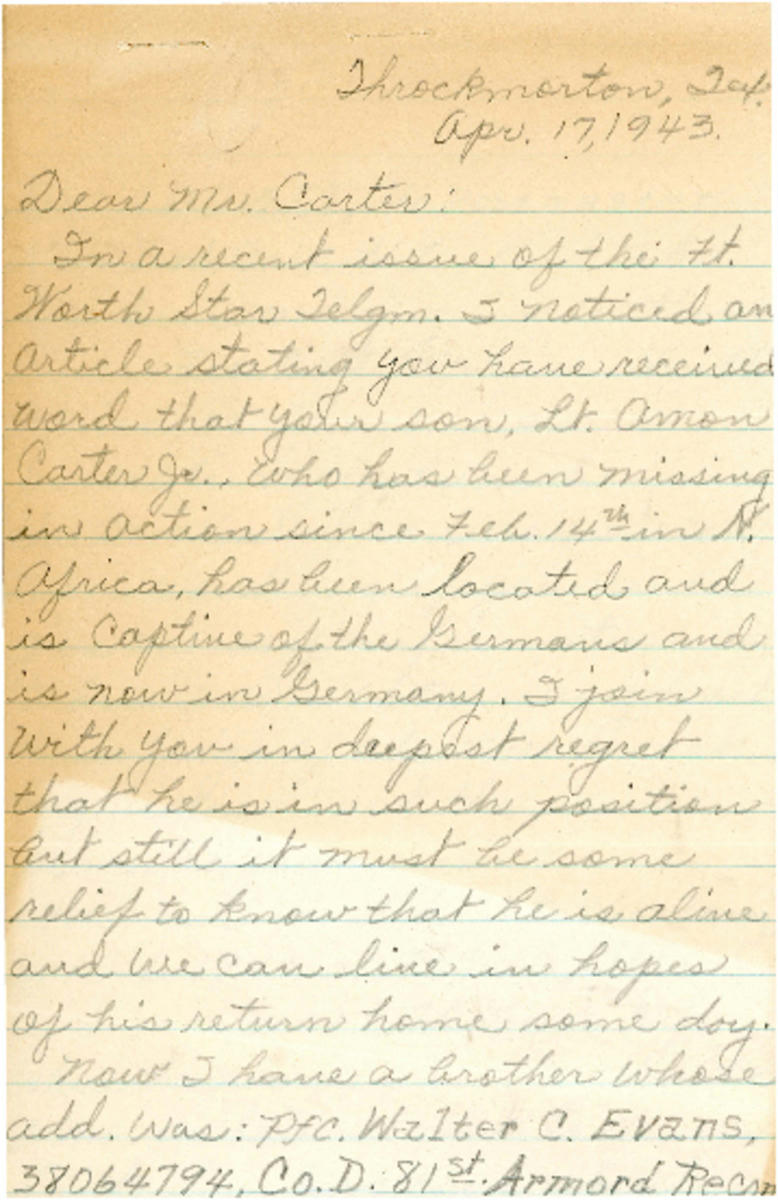 Throckmorton, Tex.
Apr. 17, 1943.
Dear Mr. Carter:
In a recent issue of the Ft.
Worth Star Telgm. I noticed an
article stating you have received
word that your son, Lt. Amon
Carter Jr., who has been missing
in action since Feb. 14th in N.
Africa, has been located and
is captive of the Germans and
is now in Germany. I join
with you in deepest regret
that he is in such position
but still it must be some
relief to know that he is alive
and we can live in hopes
of his return home some day.
Now I have a brother whose
add. was: Pfc. Walter C. Evans,
38064794, Co. D. 81st. Armord Recon